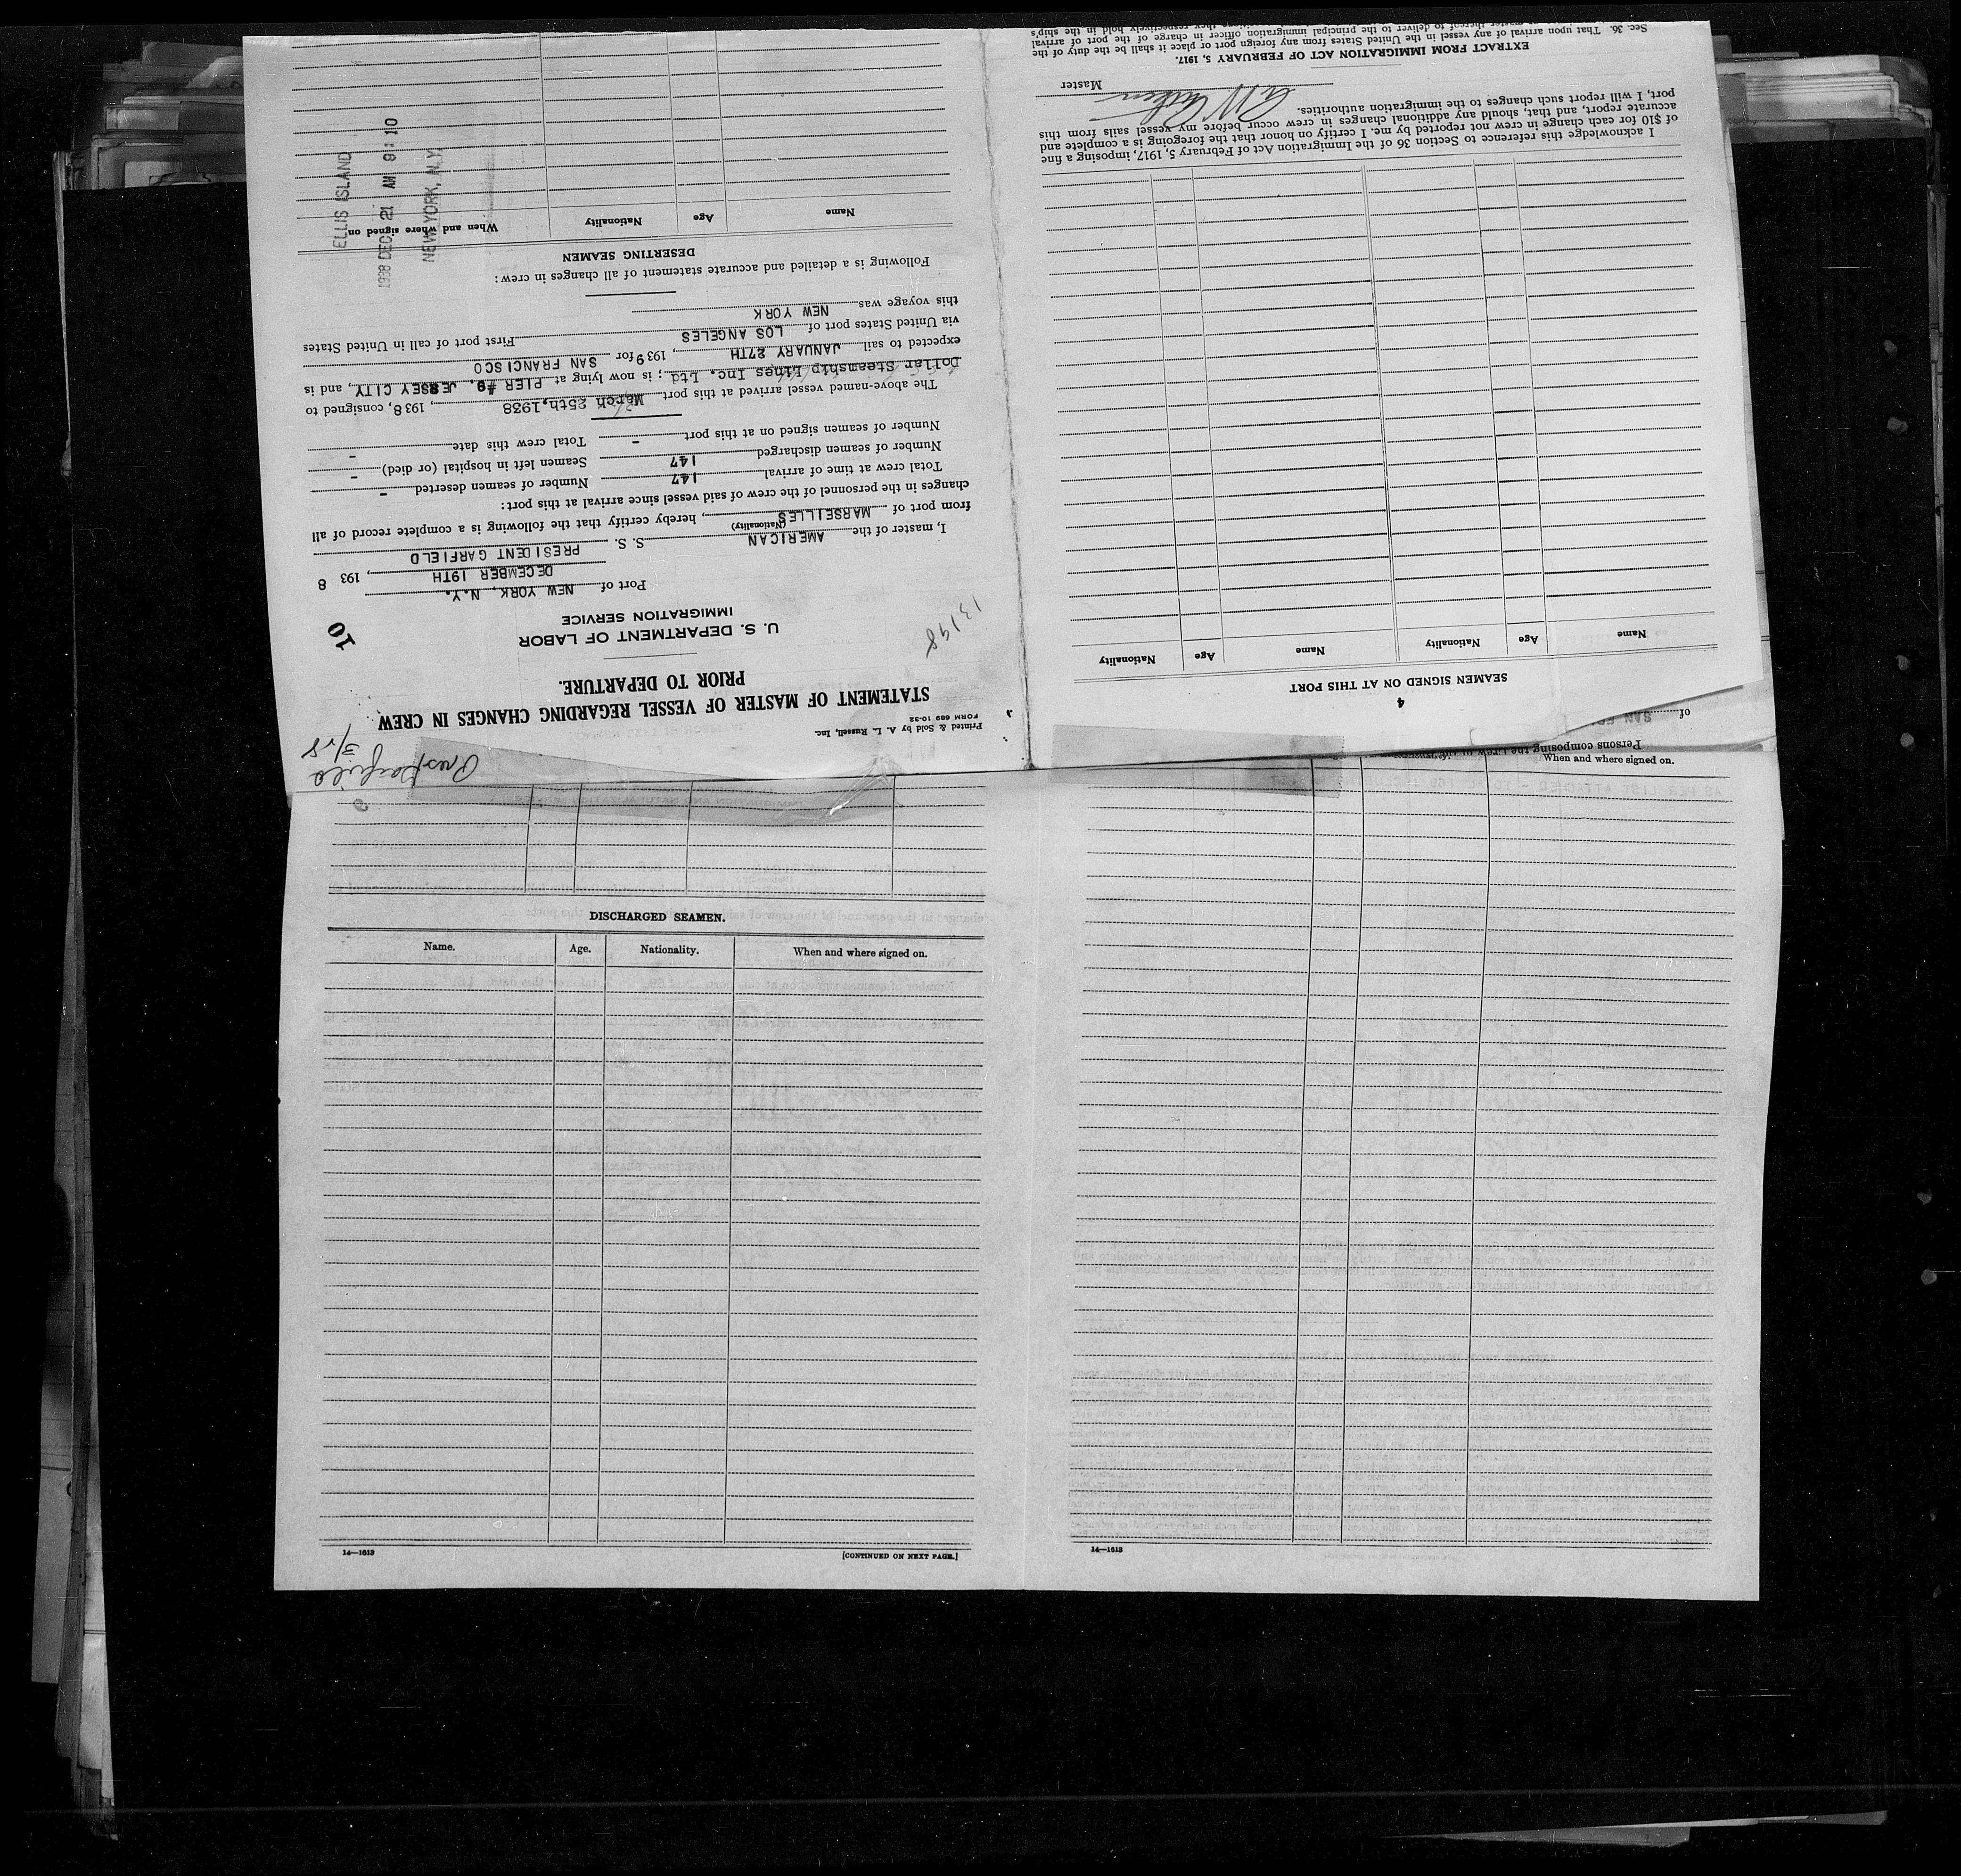 Pres Garfield
3/25
Printed & Sold by A. L. Russell, Inc.
FORM 689 10-32
STATEMENT OF MASTER OF VESSEL REGARDING CHANGES IN CREW
PRIOR TO DEPARTURE.
13198
10
U. S. DEPARTMENT OF LABOR
IMMIGRATION SERVICE
Port of NEW YORK, N.Y.
DECEMBER 19TH, 193 8
I, master of the AMERICAN S. S. PRESIDENT GARFIELD
(Nationality)
from port of MARSEILLES, hereby certify that the following is a complete record of all
changes in the personnel of the crew of said vessel since arrival at this port:
Total crew at time of arrival 147 Number of seamen deserted -
Number of seamen discharged 147 Seamen left in hospital (or died) -
Number of seamen signed on at this port - Total crew this date -
The above-named vessel arrived at this port March 25th, 1938, 1938, consigned to
Dollar Steamship Lines Inc. Ltd; is now lying at PIER #9, JERSEY CITY, and is
expected to sail JANUARY 27TH, 1939 for SAN FRANCISCO
via United States port of LOS ANGELES First port of call in United States
this voyage was NEW YORK
Following is a detailed and accurate statement of all changes in crew:
DESERTING SEAMEN
Name Age Nationality When and where signed on
ELLIS ISLAND
1938 DEC 21 AM 9:10
NEW YORK, N.Y.
of SAN
4
SEAMEN SIGNED ON AT THIS PORT
Name Age Nationality Name Age Nationality
I acknowledge this reference to Section 36 of the Immigration Act of February 5, 1917, imposing a fine
of $10 for each change in crew not reported by me. I certify on honor that the foregoing is a complete and
accurate report, and that, should any additional changes in crew occur before my vessel sails from this
port, I will report such changes to the immigration authorities.
Master
EXTRACT FROM IMMIGRATION ACT OF FEBRUARY 5, 1917.
Sec. 36. That upon arrival of any vessel in the United States from any foreign port or place it shall be the duty of the
master thereof to deliver to the principal immigration officer in charge of the port of arrival
they respectively hold in the ship's
Persons composing the crew
When and where signed on.
DISCHARGED SEAMEN.
Name. Age. Nationality. When and where signed on.
14—1613
[CONTINUED ON NEXT PAGE.]
14—1613